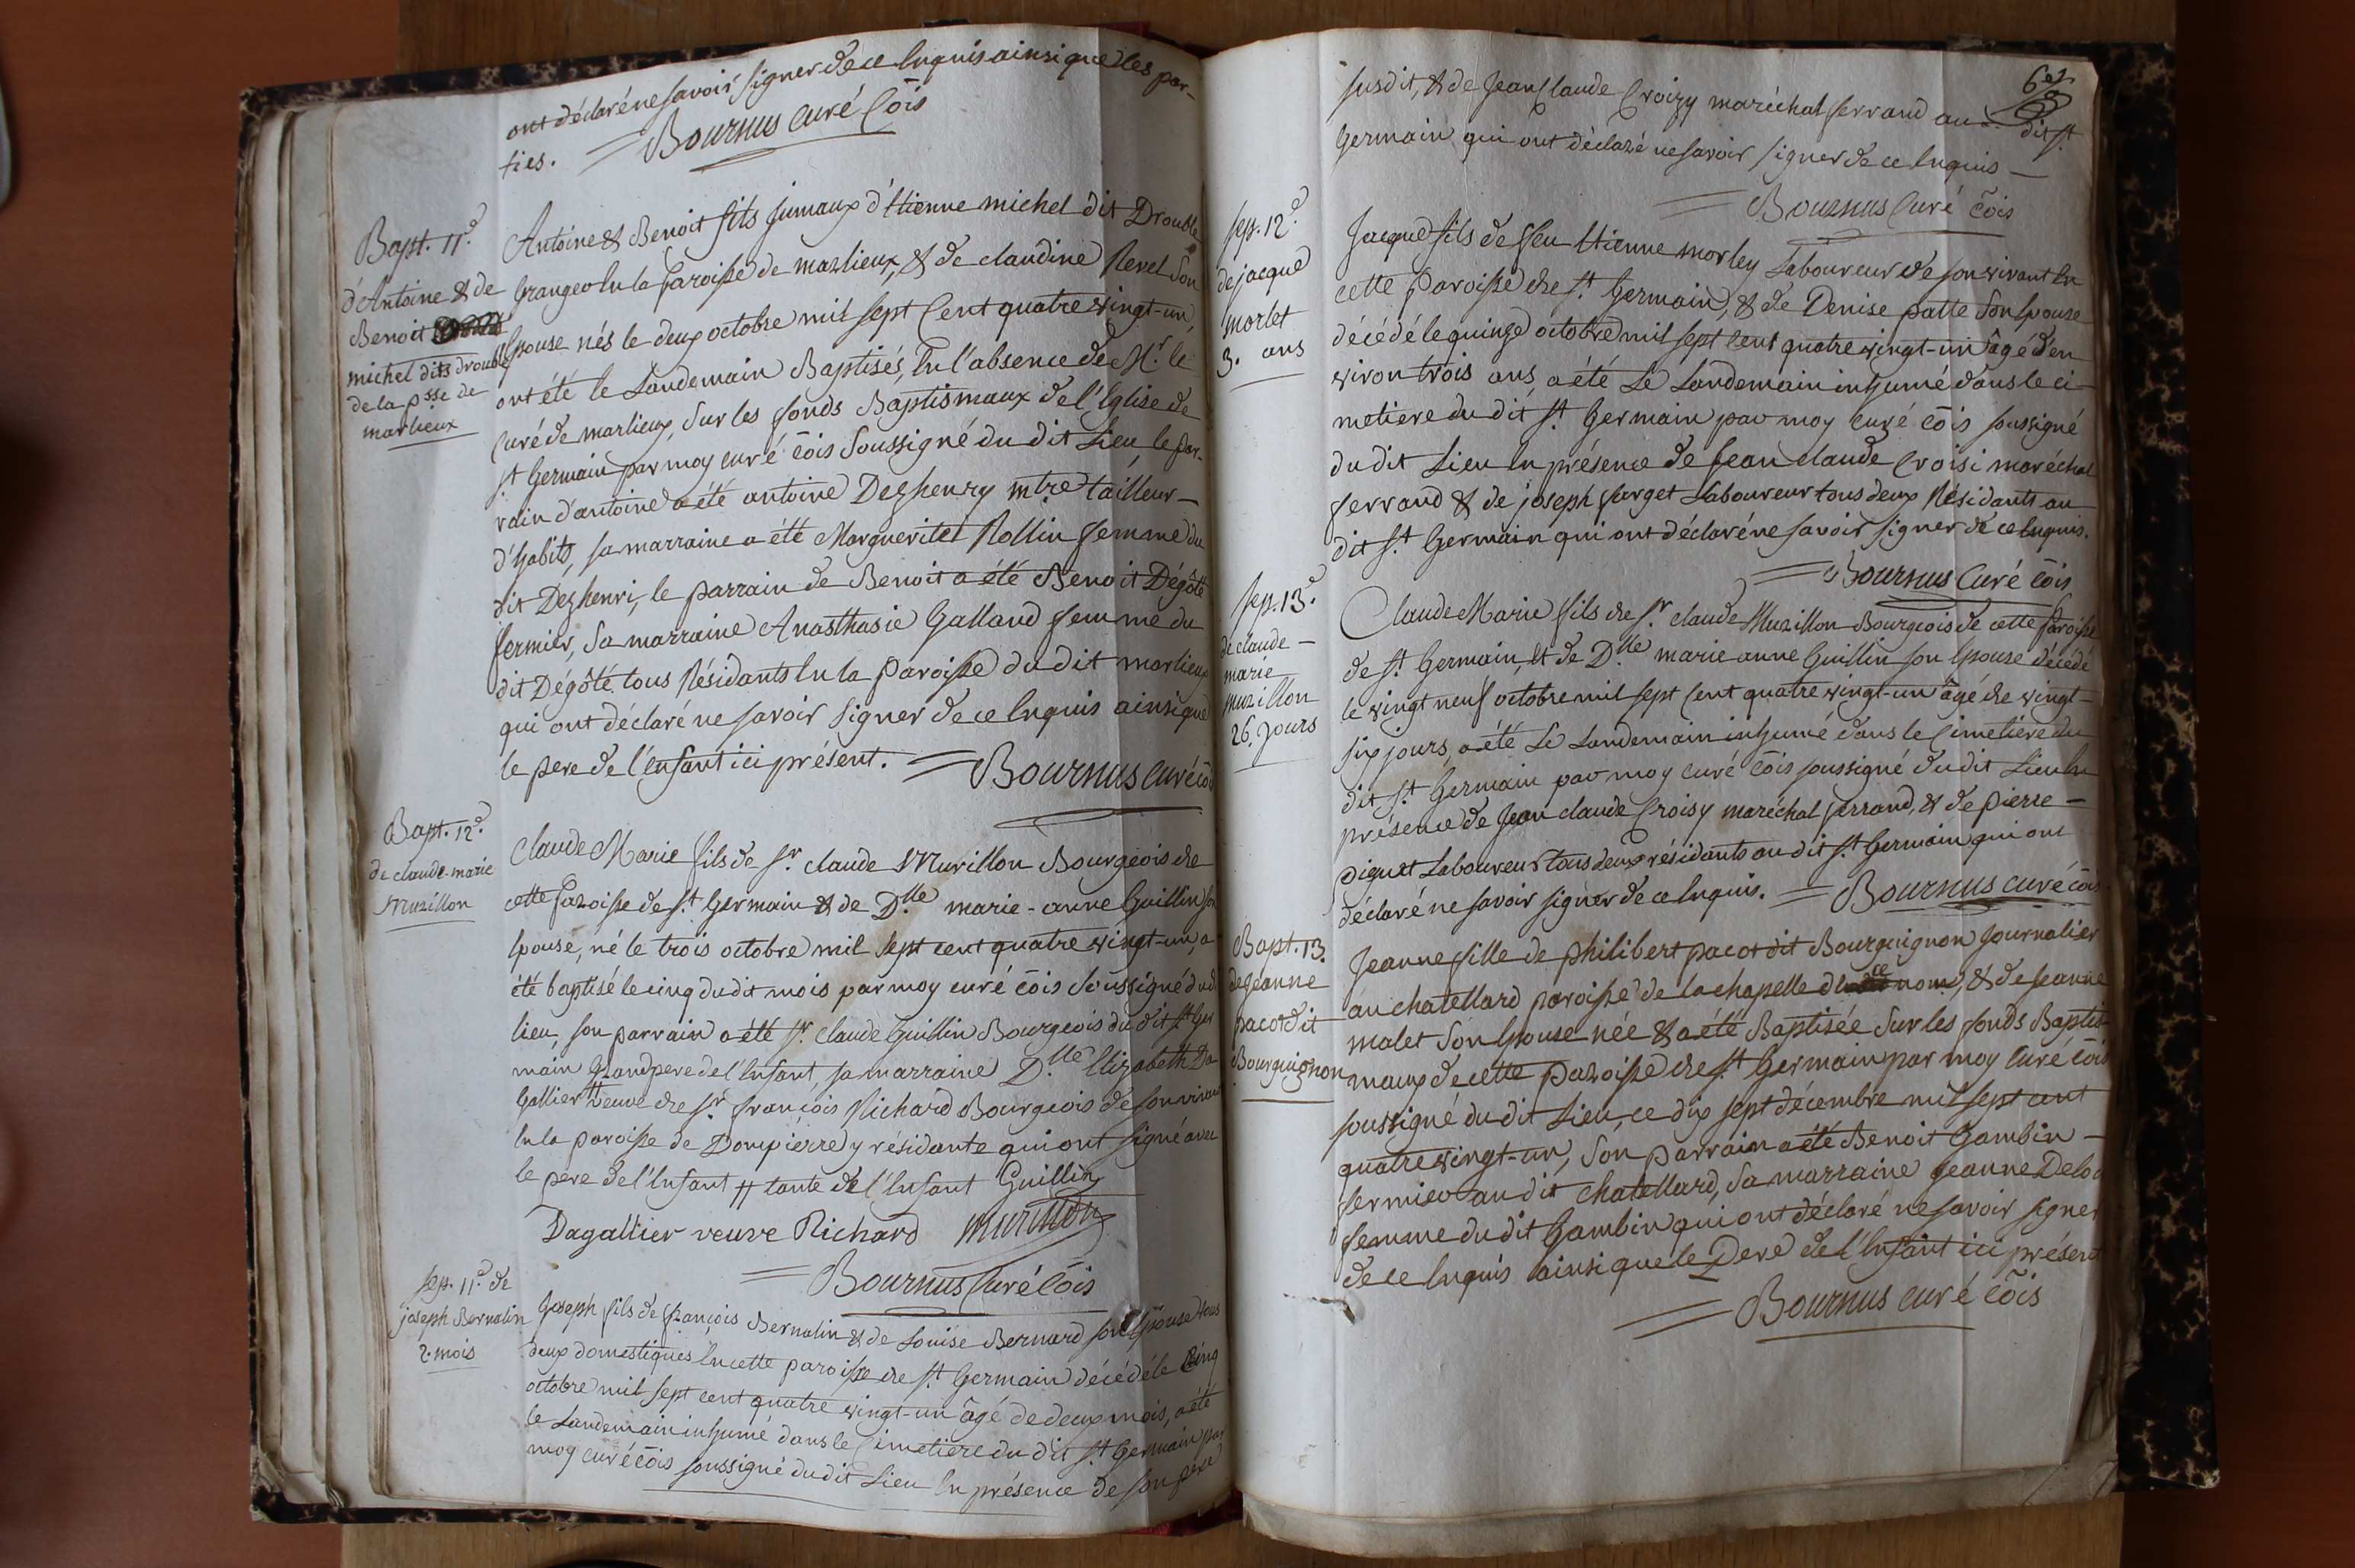 ont déclaré ne savoir signer de ce Enquis ainsi que les par-
ties. Bournus curé c̄ois
Bapt. 11.e
d'Antoine & de
Benoit
michel dits drouble
de la psse de
marlieux
Antoine & Benoit fils jumaux d'Etienne michel dit Drouble
Grangeo En la Paroisse de marlieux, & de claudine Revel Son
Epouse nés le deux octobre mil sept Cent quatre vingt-un,
ont été le Landemain Baptisés, En l'absence de Mr. le
Curé de marlieux, Sur les fonds Baptismaux de l'Eglise de
st. Germain par moy curé c̄ois Soussigné du dit Lieu, le par-
rain d'antoine a été antoine Dezhenry mtre tailleur
d'habits, sa marraine a été Margueritte Rollin femme du
dit Dezhenri, le parrain de Benoit a été Benoit Dégôté
fermier, Sa marraine Anasthasie Galland femme du
dit Dégôté. tous Résidants En la Paroisse du dit marlieux
qui ont déclaré ne savoir signer de ce Enquis ainsi que
le pere de l'enfant ici présent. Bournus curé c̄ois
Bapt. 12.e
de claude-marie
Murillon
Claude Marie fils de sr. claude Murillon Bourgeois de
cette Paroisse de st. Germain & de Dlle marie-anne Guillin son
Epouse, né le trois octobre mil sept cent quatre vingt-un, a
été baptisé le cinq du dit mois par moy curé c̄ois Soussigné dudt
lieu, son parrain a été sr. Claude Guillin Bourgeois du dit st Ger
main Grand pere de l'Enfant, sa marraine Dlle Elizabeth Da
Gallier # veuve de sr. françois Richard Bourgeois de son vivant
En la paroisse de Dompierre y résidante qui ont signé avec
le pere de l'Enfant # tante de l'Enfant Guillin
Dagallier veuve Richard Murillon
Bournus Curé c̄ois
Sep. 11.e de
joseph Bernalin
2. mois
Joseph fils de françois Bernalin & de Louise Bernard son Epouse tous
deux domestiques En cette paroisse de st. Germain décédé le Cinq
octobre mil sept cent quatre vingt-un âgé de deux mois, a été
le Landemain inhumé dans le Cimetiere du dit st. Germain par
moy curé c̄ois soussigné du dit Lieu En présence de son pere
susdit, & de Jean Claude Croizy maréchal ferrand au dit st.
Germain qui ont déclaré ne savoir signer de ce Enquis
Bournus Curé c̄ois
Sep. 12.e
de jacque
morlet
3. ans
Jacque fils de feu Etienne morley Laboureur de son vivant En
cette Paroisse de st. Germain, & de Denise patte Son Epouse
décédé le quinze octobre mil sept cent quatre vingt-un âgé d'en
viron trois ans, a été Le Landemain inhumé dans le ci-
metiere du dit st. Germain par moy curé c̄ois soussigné
du dit Lieu En présence de Jean claude Croisi maréchal
ferrand & de joseph farget Laboureur tous deux Résidants au
dit st. Germain qui ont déclaré ne savoir signer de ce Enquis.
Bournus Curé c̄ois
Sep. 13.e
de claude
marie
murillon
26. Jours
Claude Marie fils de sr. claude Murillon Bourgeois de cette Paroisse
de st. Germain, et de Dlle marie anne Guillin son Epouse décédé
le vingt neuf octobre mil sept Cent quatre vingt-un âgé de vingt-
six jours, a été Le Landemain inhumé dans le Cimetiere du
dit st. Germain par moy curé c̄ois soussigné du dit Lieu En
présence de Jean claude Croisy maréchal ferrand, & de pierre
piquet Laboureur tous deux résidants au dit st. Germain qui ont
déclaré ne savoir signer de ce Enquis. Bournus curé c̄ois
Bapt. 13.
de Jeanne
pacot dit
Bourguignon
Jeanne fille de philibert pacot dit Bourguignon Journalier
au chatellard paroisse de la chapelle du ce nom, & de Jeanne
malet Son Epouse née & a été Baptisée Sur les fonds Baptis
maux de cette paroisse de st. Germain par moy Curé c̄ois
soussigné du dit Lieu, ce dix sept décembre mil sept cent
quatre vingt-un, Son parrain a été Benoit Gambin
fermier au dit chatellard, sa marraine jeanne
femme du dit Gambin qui ont déclaré ne savoir signer
de ce Enquis ainsi que le Pere de l'Enfant ici présent
Bournus curé c̄ois